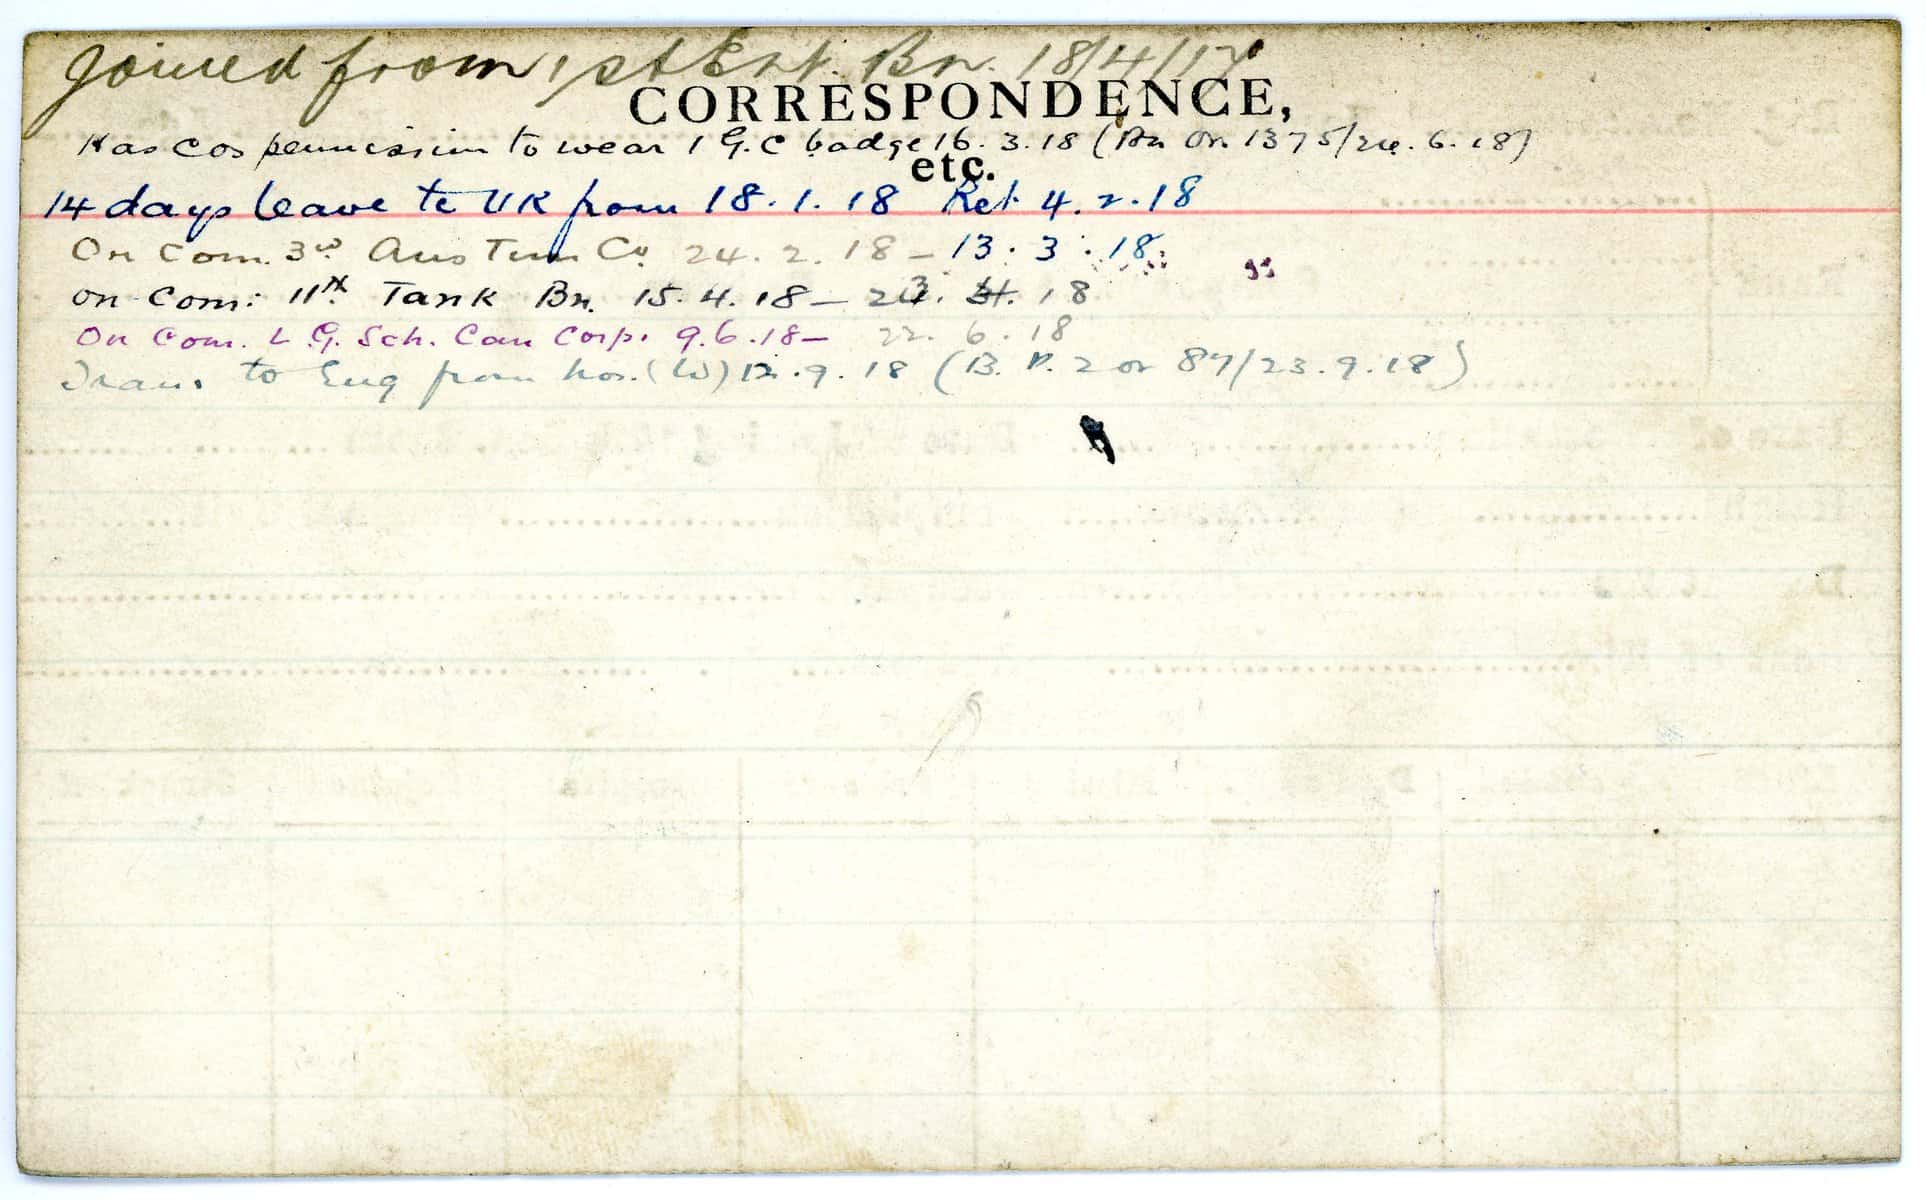 Joined from 1st Ent. Bn. 18/4/17
CORRESPONDENCE,
Has Cos permission to wear 1 G.C badge 16.3.18 (Bn Or. 1375/24.6.18)
etc.
14 days leave to UK from 18.1.18 Ret 4.2.18
On Com. 3rd Aus Tun Co. 24.2.18 - 13.3.18.
on Com: 11th Tank Bn. 15.4.18 - 23. 4. 18
On Com. L.G. Sch. Can Corp. 9.6.18 - 22.6.18
Trans to Eng from hos. (W) 12.9.18 (B. P. 2 or 87/23.9.18)